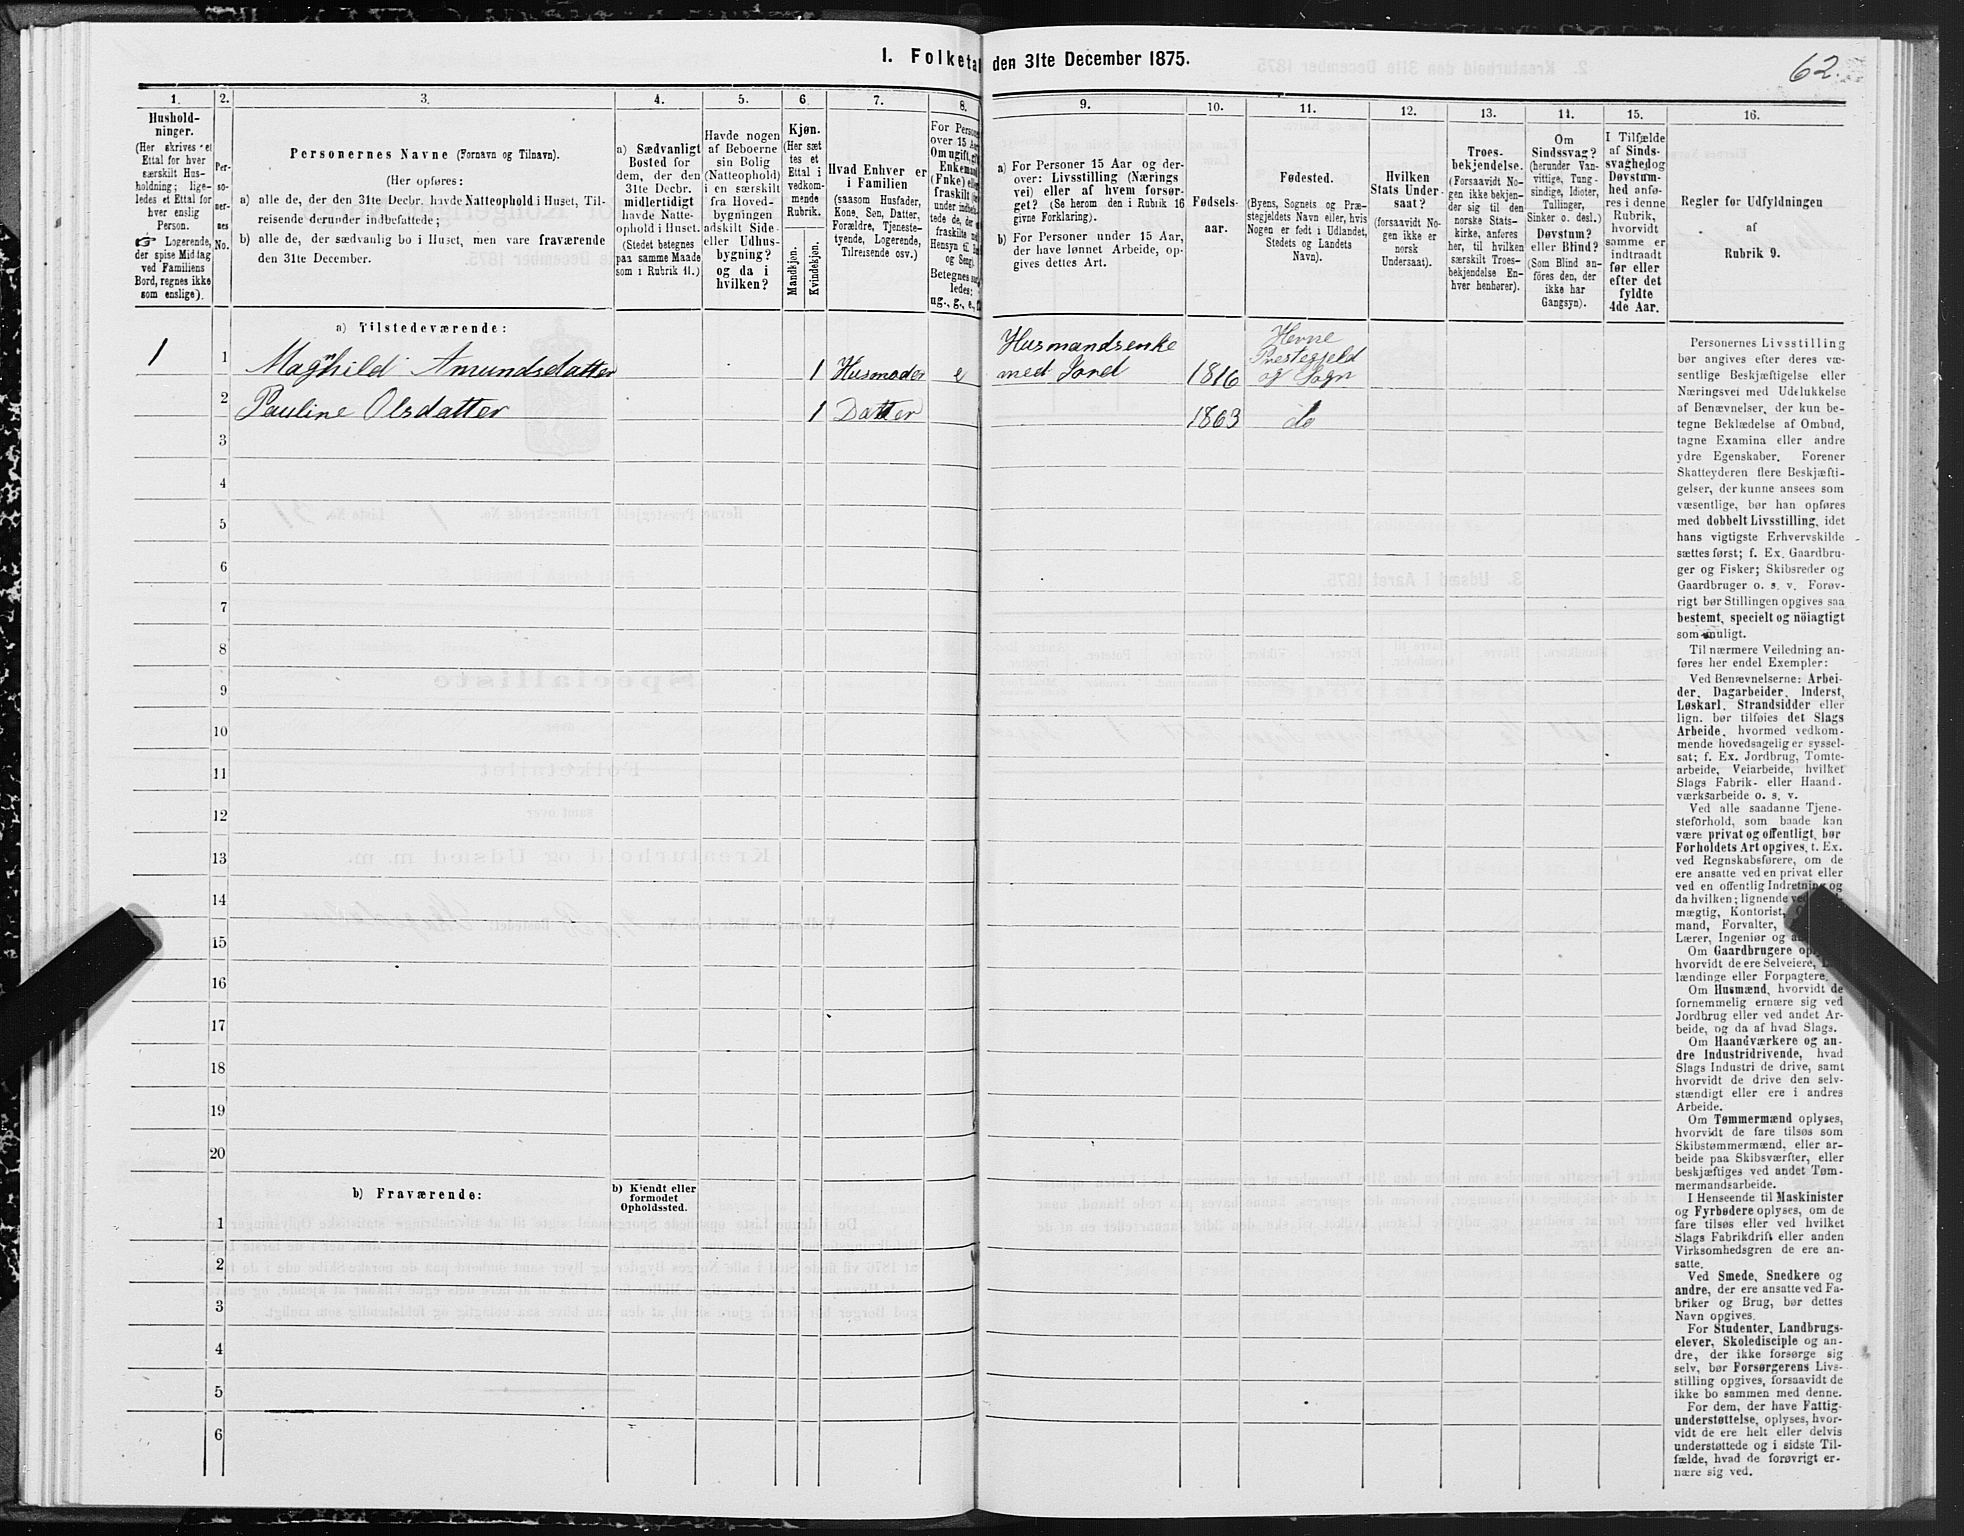 I. Folketal den 31te December 1875.
62.
1.
2.
3.
4.
5.
6.
7.
8.
9.
10.
11.
12.
13.
14.
15.
16.
Hushold-
ninger.
(Her skrives et
Ettal for hver
særskilt Hus-
holdning; lige-
ledes et Ettal for
hver enslig
Person.
☞ Logerende,
der spise Middag
ved Familiens
Bord, regnes ikke
som enslige).
Per-
so-
ner-
nes
No.
Personernes Navne (Fornavn og Tilnavn).
(Her opføres:
a) alle de, der den 31te Decbr. havde Natteophold i Huset, Til-
reisende derunder indbefattede;
b) alle de, der sædvanlig bo i Huset, men vare fraværende
den 31te December.
a) Sædvanligt
Bosted for
dem, der den
31te Decbr.
midlertidigt
havde Natte-
ophold i Huset.
(Stedet betegnes
paa samme Maade
som i Rubrik 11.)
Havde nogen
af Beboerne
sin Bolig
(Natteophold)
i en særskilt
fra Hoved-
bygningen
adskilt Side-
eller Udhus-
bygning?
og da i
hvilken?
Kjøn.
(Her sæt-
tes et
Ettal i
vedkom-
mende
Rubrik.
Mandkjøn.
Kvindekjøn.
Hvad Enhver er
i Familien
(saasom Husfader,
Kone, Søn, Datter,
Forældre, Tjeneste-
tyende, Logerende,
Tilreisende osv.)
For Person
over 15 Aar
Om ugift, gi
Enkemand
(Enke) elle
fraskilt
under indbefat-
tede de, der
fraskilte
Hensyn til
og Seng).
Betegnes saa-
ledes:
ug., g., e.,
a) For Personer 15 Aar og der-
over: Livsstilling (Nærings-
vei) eller af hvem forsør-
get? (Se herom den i Rubrik 16
givne Forklaring).
b) For Personer under 15 Aar,
der have lønnet Arbeide, op-
gives dettes Art.
Fødsels-
aar.
Fødested.
(Byens, Sognets og Præ-
stegjeldets Navn eller, hvis
Nogen er født i Udlandet,
Stedets og Landets
Navn).
Hvilken
Stats Under-
saat?
(forsaavidt No-
gen ikke er
norsk
Undersaat).
Troes-
bekjendelse.
(Forsaavidt No-
gen ikke bekjen-
der sig til den
norske Stats-
kirke, anføres
her, til hvilken
særskilt Troes-
bekjendelse En-
hver henhører).
Om
Sindssvag?
(herunder Van-
vittige, Tung-
sindige, Idioter,
Tullinger,
Sinker o. desl.)
Døvstum?
eller Blind?
(Som Blind an-
føres den, der
ikke har
Gangsyn).
I Tilfælde
af Sinds-
svaghed og
Døvstum-
hed anfø-
res i denne
Rubrik,
hvorvidt
samme er
indtraadt
før eller
efter det
fyldte
4de Aar.
Regler for Udfyldningen
af
Rubrik 9.
a) Tilstedeværende:
1 1 Maghild Amundsdatter 1 Husmoder e Husmandsenke med Jord 1816 Hevne Prestegjeld og Sogn
2 Pauline Olsdatter 1 Datter 1863 do
3
4
5
6
7
8
9
10
11
12
13
14
15
16
17
18
19
20
b) Fraværende:
b) Kjendt eller
formodet
Opholdssted.
1
2
3
4
5
6
Personernes Livsstilling
bør angives efter deres væ-
sentlige Beskjæftigelse eller
Næringsvei med Udelukkelse
af Benævnelser, der kun be-
tegne Beklædelse af Ombud,
tagne Examina eller andre
ydre Egenskaber. Forener
Skatteyderen flere Beskjæfti-
gelser, der kunne ansees som
væsentlige, bør han opføres
med dobbelt Livsstilling, idet
hans vigtigste Erhvervskilde
sættes først; f. Ex. Gaardbru-
ger og Fisker; Skibsreder og
Gaardbruger o. s. v. Forøv-
rigt bør Stillingen opgives saa
bestemt, specielt og nöiagtigt
som muligt.
Til nærmere Veiledning an-
føres her endel Exempler:
Ved Benævnelserne: Arbei-
der, Dagarbeider, Inderst,
Løskarl, Strandsidder eller
lign. bør tilføies det Slags
Arbeide, hvormed vedkom-
mende hovedsagelig er syssel-
sat; f. Ex. Jordbrug, Tomte-
arbeide, Veiarbeide, hvilket
Slags Fabrik- eller Haand-
værksarbeide o. s. v.
Ved alle saadanne Tjene-
steforhold, som baade kan
være privat og offentligt, bør
Forholdets Art opgives, t. Ex.
ved Regnskabsførere, om de
ere ansatte ved en privat eller
ved en offentlig Indretning og
da hvilken; lignende
mægtig, Kontorist,
mand, Forvalter,
Lærer, Ingeniør og
Om Gaardbrugere
hvorvidt de ere Selveiere,
lændinge eller Forpagtere.
Om Husmænd, hvorvidt de
fornemmelig ernære sig ved
Jordbrug eller ved andet Ar-
beide, og da af hvad Slags.
Om Haandværkere og an-
dre Industridrivende, hvad
Slags Industri de drive, samt
hvorvidt de drive den selv-
stændigt eller ere i andres
Arbeide.
Om Tømmermænd oplyses,
hvorvidt de fare tilsøs som
Skibstømmermænd, eller ar-
beide paa Skibsværfter, eller
beskjæftiges ved andet Tøm-
mermandsarbeide.
I Henseende til Maskinister
og Fyrbødere oplyses, om de
fare tilsøs eller ved hvilket
Slags Fabrikdrift eller anden
Virksomhedsgren de ere an-
satte.
Ved Smede, Snedkere og
andre, der ere ansatte ved Fa-
briker og Brug, bør dettes
Navn opgives.
For Studenter, Landbrugs-
elever, Skoledisciple og an-
dre, der ikke forsørge sig
selv, bør Forsørgerens Livs-
stilling opgives, forsaavidt de
ikke bo sammen med denne.
For dem, der have Fattig-
understøttelse, oplyses, hvor-
vidt de ere helt eller delvis
understøttede og i sidste Til-
fælde, hvad de forøvrigt er-
nære sig ved.